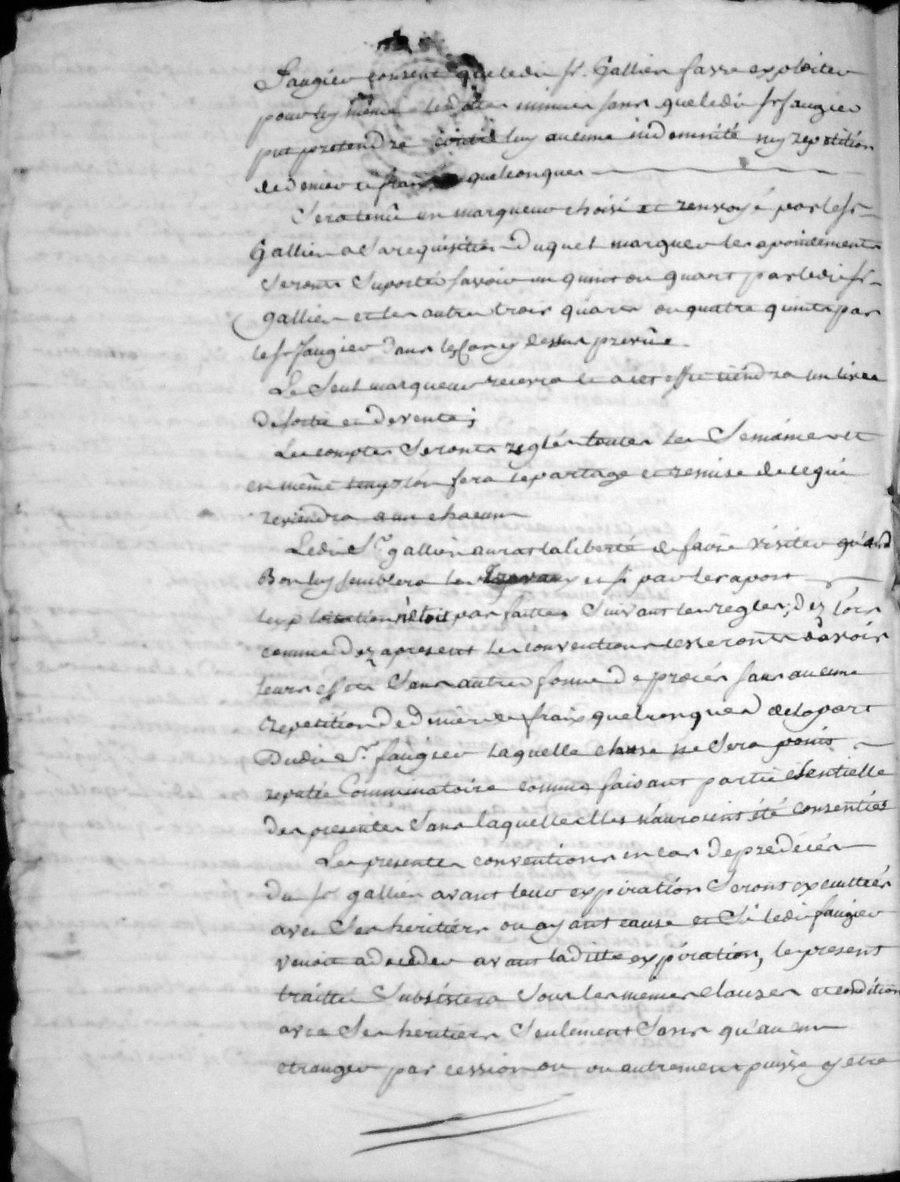 Faugier consent que ledit Sr. Gallien fasse exploiter
pour luy même lesdites mines sans que ledit Sr faugier
put pretendre contre luy aucune indemnité ny repetition
de denier et frais quelconques
Sera tenu un marqueur choisi et renvoyé par le Sr
Gallien a Sa requisition Duquel marqueur les apointements
Seront Suportés savoir un quint ou quart par ledit Sr
gallien et les autres trois quarts ou quatre quints par
le Sr faugier Dans les cas cy dessus prevûs.
Le Seul marqueur recevra et a cet effet tiendra un livre
De sortie et de vente ;
Les comptes Seront reglés toutes les Semaines et
en même temps lon fera le partage et remise de ce qui
reviendra a un chacun
Ledit Sr. gallien aurat la liberté de faire visiter quand
Bon luy semblera les travaux et si par le raport
lexploitation n'etoit pas faitte Suivant les regles, Dez lors
comme Dez apresent les conventions cesseront d'avoir
leurs effets Sans autre forme De procés sans aucune
repetition De denier ni frais quelconques de la part
Dudit Sr. faugier laquelle clause ne Sera point
reputée Comminatoire comme faisant partie essentielle
des presentes Sans laquelle elles n'auroient été consenties
Les presentes conventions en cas De predécés
du Sr gallien avant leur expiration Seront executtées
avec Ses heritiers ou ayants cause et Si ledit faugier
venoit a deceder avant laditte expiration, le present
traitté Subsistera Sous les memes clauses et condition
avec Ses heritiers Seulement Sans qu'aucun
etranger par cession ou autrement puisse y etre